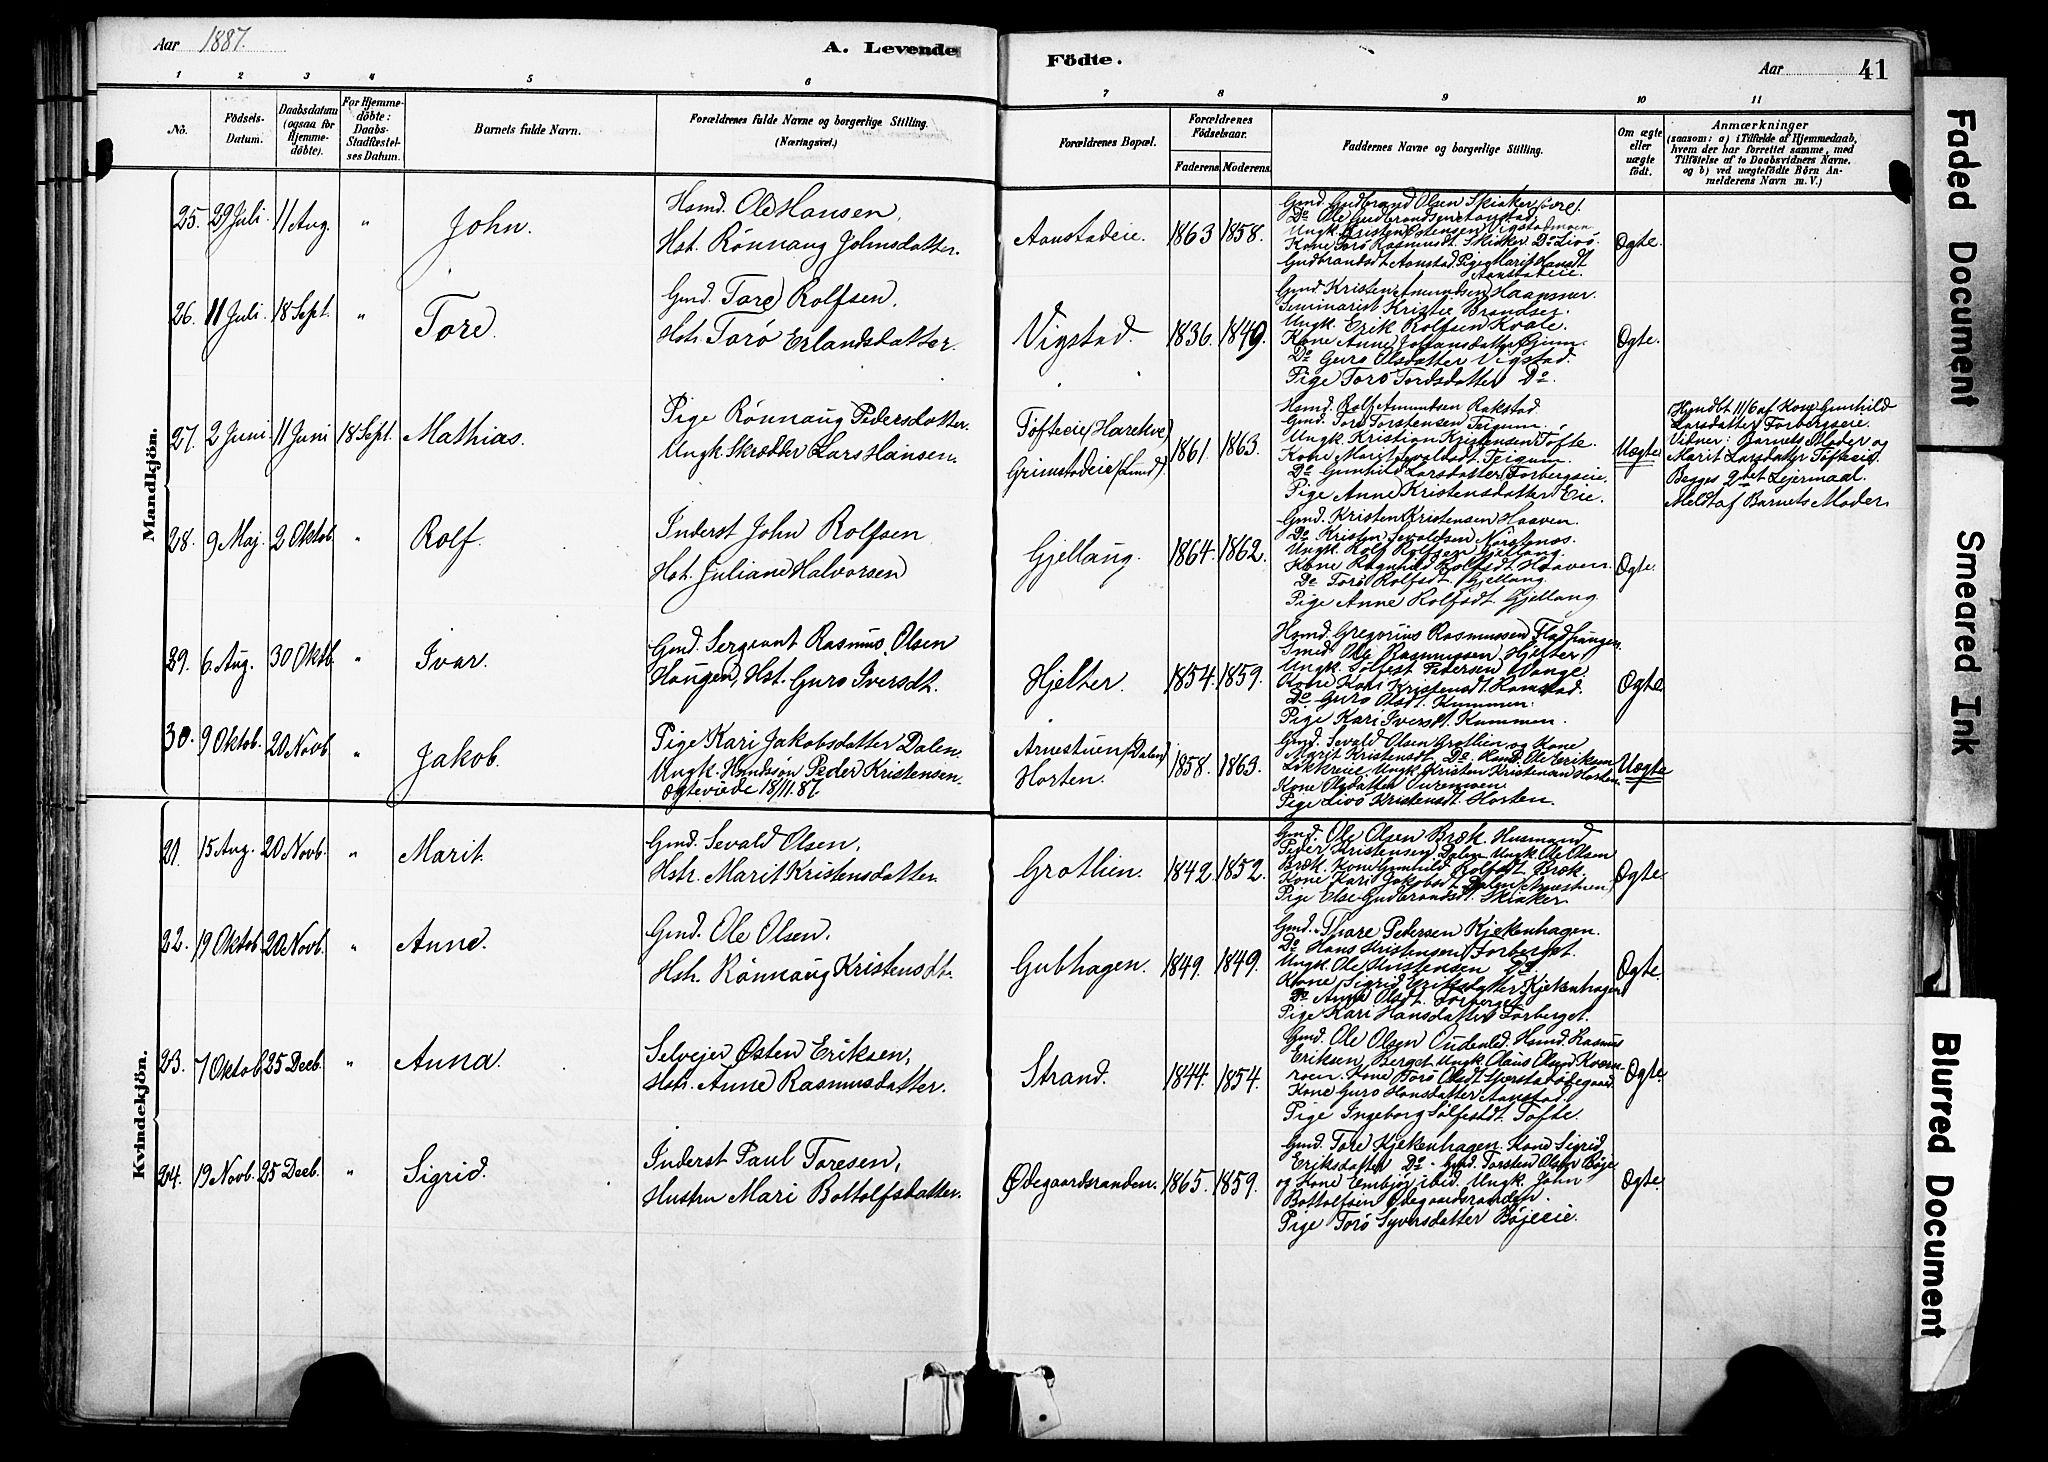 Aar 1887.
A. Levende
Födte.
Aar
41
1 2 3 4 5 6 7 8 9 10 11
No.
Födsels-Datum.
Daabsdatum (ogsaa for Hjemme-döbte).
For Hjemme-döbte: Daabs-Stadfæstel-ses Datum.
Barnets fulde Navn.
Forældrenes fulde Navne og borgerlige Stilling.
(Næringsvei.)
Forældrenes Bopæl.
Forældrenes Födselsaar.
Faderens. Moderens.
Faddernes Navne og borgerlige Stilling.
Om ægte eller uægte födt.
Anmærkninger
(saasom: a) i Tilfælde af Hjemmedaab,
hvem der har forrettet samme, med
Tilföielse af to Daabsvidners Navne.
og b) ved uægtefödte Börn An-
melderens Navn m. V.)
Mandkjön.
25. 29 Juli. 11 Aug. " John.
Hsmd. Ole Hansen,
Hst. Rönnaug Johnsdatter.
Aanstadeie. 1863 1858.
Gmd. Gudbrand Olsen Skiaker
Do Ole Gudbrandsen Aanstad.
Ungk. Kristen Estensen Vigstadmoen.
Kone Torö Rasmusdt. Skiaker Do Livö
Gudbrandsdt. Aanstad. Pige Marit Hansdt.
Aanstadeie.
Ogte.
26. 11 Juli. 18 Sept. " Tore.
Gmd. Tore Rolfsen.
Hstr. Torö Erlandsdatter.
Vigstad. 1836. 1849.
Gmd. Kristen Amundsen Haapmer.
Seminarist Kristie Brandsej.
Ungk. Erik Rolfsen Kvale.
Kone Anne Johansdatter
Do Guro Olsdatter Vigstad.
Pige Torö Tordsdatter Do.
Ogte.
27. 2 Juni 11 Juni 18 Sept. Mathias.
Pige Rönnaug Pedersdatter.
Ungk. Skrædder Lars Hansen.
Tofteeie (Harekve)
Grimstadeie (Lund). 1861. 1863.
Hsmd. Rolf Amundsen Rakstad.
Gmd. Tore Torstensen Teigum.
Ungk. Kristian Kristensen Tofte.
Kone Marit Sevaldsdt. Teigum.
Do Gunhild Larsdatter Forbergseie.
Pige Anne Kristensdatter Eie.
Uægte
Hjmdbt 11/6 af Kone Gunhild
Larsdatter Forbergseie.
Vidner: Barnets Moder og
Marit Larsdatter Tofteeie.
Begges 2det Lejermaal.
Meldt af Barnets Moder.
28. 9 Maj. 2 Oktob. " Rolf.
Inderst John Rolfsen
Hst. Juliane Halvorsen
Gjellaug. 1864. 1862.
Gmd. Kristen Kristensen Haaven.
Do. Kristen Sevaldsen Norstenos.
Ungk. Rolf Rolfsen Gjellang.
Kone Ragnhild Rolfsdt. Haaven.
Do Torö Rolfsdt. Gjellang.
Pige Anne Rolfsdt Gjellang
Ogte.
29. 6 Aug. 30 Oktb. " Ivar.
Gmd. Sergeant Rasmus Olsen
Haugen, Hst. Guro Iversdt.
Hjelter. 1854. 1859.
Hsmd. Gregorius Rasmussen Fladhaugen.
Smed. Ole Rasmussen Hjelter
Ungk. Sölfest Pedersen Vange.
Kone Kari Kristensdt. Ramstad.
Do Guro Olsdt. Kummen.
Pige Kari Iversdt. Kummen.
Ogte.
30. 9 Oktob. 20 Novb. " Jakob.
Pige Kari Jakobsdatter Dalen.
Ungk. Hsmdssön Peder Kristensen.
Ogteviede 18/11. 87.
Arnestuen (Dalen)
Horten. 1858. 1863.
Gmd. Sevald Olsen Grotlien og Kone
Marit Kristensdt. Do. Hsmd. Ole Eriksen
Lökkreeie. Ungk. Kristen Kristensen Horten.
Kone Olsdatter Øuremoen.
Pige Livö Kristensdt. Horten.
Uægte
Kvindekjön.
21. 15 Aug. 20 Novb. " Marit.
Gmd. Sevald Olsen,
Hstr. Marit Kristensdatter.
Grotlien. 1842. 1852.
Gmd. Ole Olsen Bræk. Husmand
Peder Kristensen Dalen. Ungk. Ole Olsen
Bræk. Kone Gunhild Rolfsdt. Bræk.
Kone Kari Jakobsdt. Dalen (Arnestuen)
Pige Else Gudbrandsdt. Skiaker.
Ogte.
22. 19 Oktob. 20 Novb. " Anne.
Gmd. Ole Olsen.
Hstr. Rönnaug Kristensdt.
Gubhagen. 1849. 1849.
Gmd. Thore Pedersen Kjekenhagen.
Do Hans Kristensen Forberget.
Ungk. Ole Kristensen Do.
Kone Sigrid Eriksdatter Kjekenhagen
Do Anne Olsdt. Forberget.
Pige Kari Hansdatter Forberget.
Ogte.
23. 7 Oktob. 25 Deeb. " Anna.
Selvejer Østen Eriksen,
Hstr. Anne Rasmusdatter.
Strand. 1844. 1854.
Gmd. Ole Olsen Oudenled. Hsmd. Rasmus
Eriksen Berget. Ungk. Olaus Olsen Kværn-
roen. Kone Torö Olsdt.
Kone Guro Hansdatter Aanstad.
Pige Ingeborg Sölfestdt. Tofte.
Ogte.
24. 19 Novb. 25 Deeb. " Sigrid.
Inderst Paul Toresen,
Hustru Mari Bottolfsdatter.
Ødegaardsranden. 1865. 1859.
Gmd. Tore Kjekenhagen. Kone Sigrid
Eriksdatter Do. Gmd. Torsten Olsen Böje
og Kone Embjör ibid. Ungk. John
Bottolfsen Ødegaardsranden.
Pige Torö Syversdatter Böjeeie.
Ogte.
Faded Document
Smeared Ink
Blurred Document